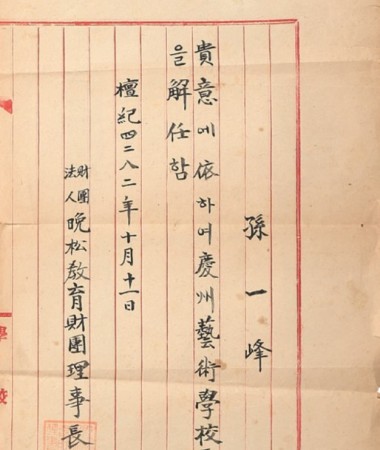 孫一峰
貴意에依하여慶州藝術學校
을解任함
檀紀四二八二年十月十一日
財團法人晩松敎育財團理事長
學校